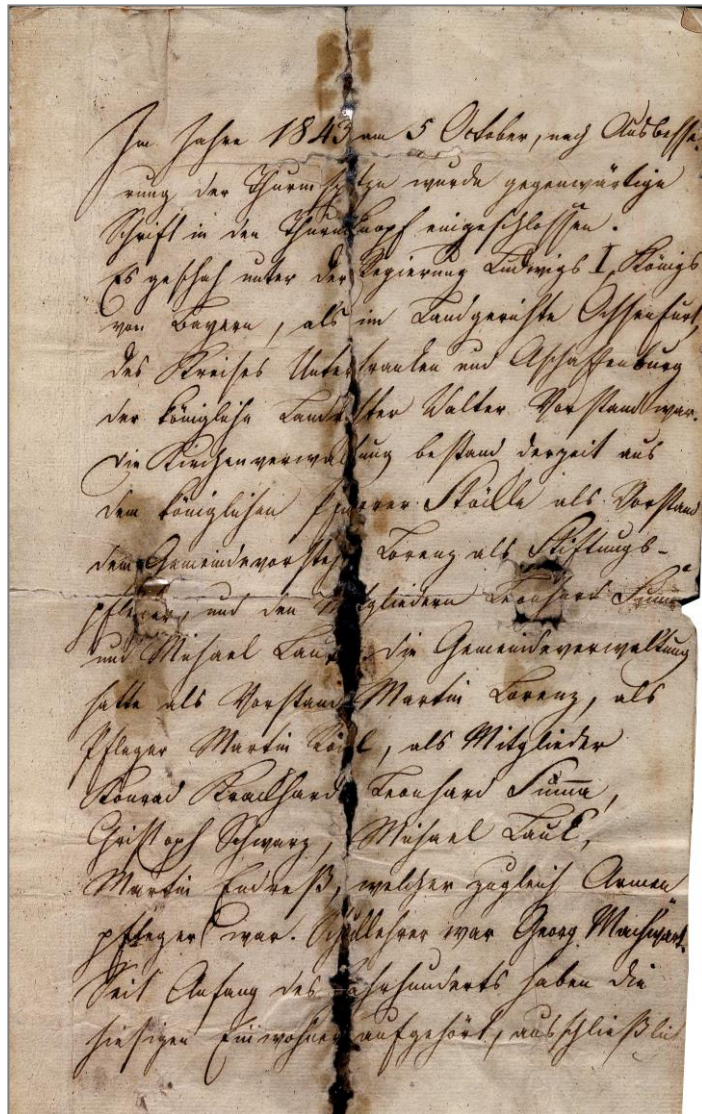 Im Jahre 1843 am 5 October, nach Ausbesse-
rung der Thurmspitze wurde gegenwärtige
Schrift in den Thurmknopf eingeschlossen.
Es geschah unter der Regierung Ludwigs I, Königs
von Bayern, als im Landgerichte Ochsenfurt,
des Kreises Unterfranken und Aschaffenburg
der königliche Landrichter Walter Vorstand war.
Die Kirchenverwaltung bestand derzeit aus
dem königlichen Pfarrer als Vorstand
dem Gemeindevorsteher Lorenz als Stiftungs-
pfleger, und den Mitgliedern Leonhard Summa
und Michael Lauk. Die Gemeindeverwaltung
hatte als Vorstand Martin Lorenz, als
Pfleger Martin, als Mitglieder
Konrad Krackhard Leonhard Summa,
Christoph Schwarz, Michael Lauk,
Martin Endreß, welcher zugleich Armen
pfleger war. Schullehrer war Georg Machwart.
Seit Anfang des Jahrhunderts haben die
hiesigen Einwohner aufgehört, ausschließlich